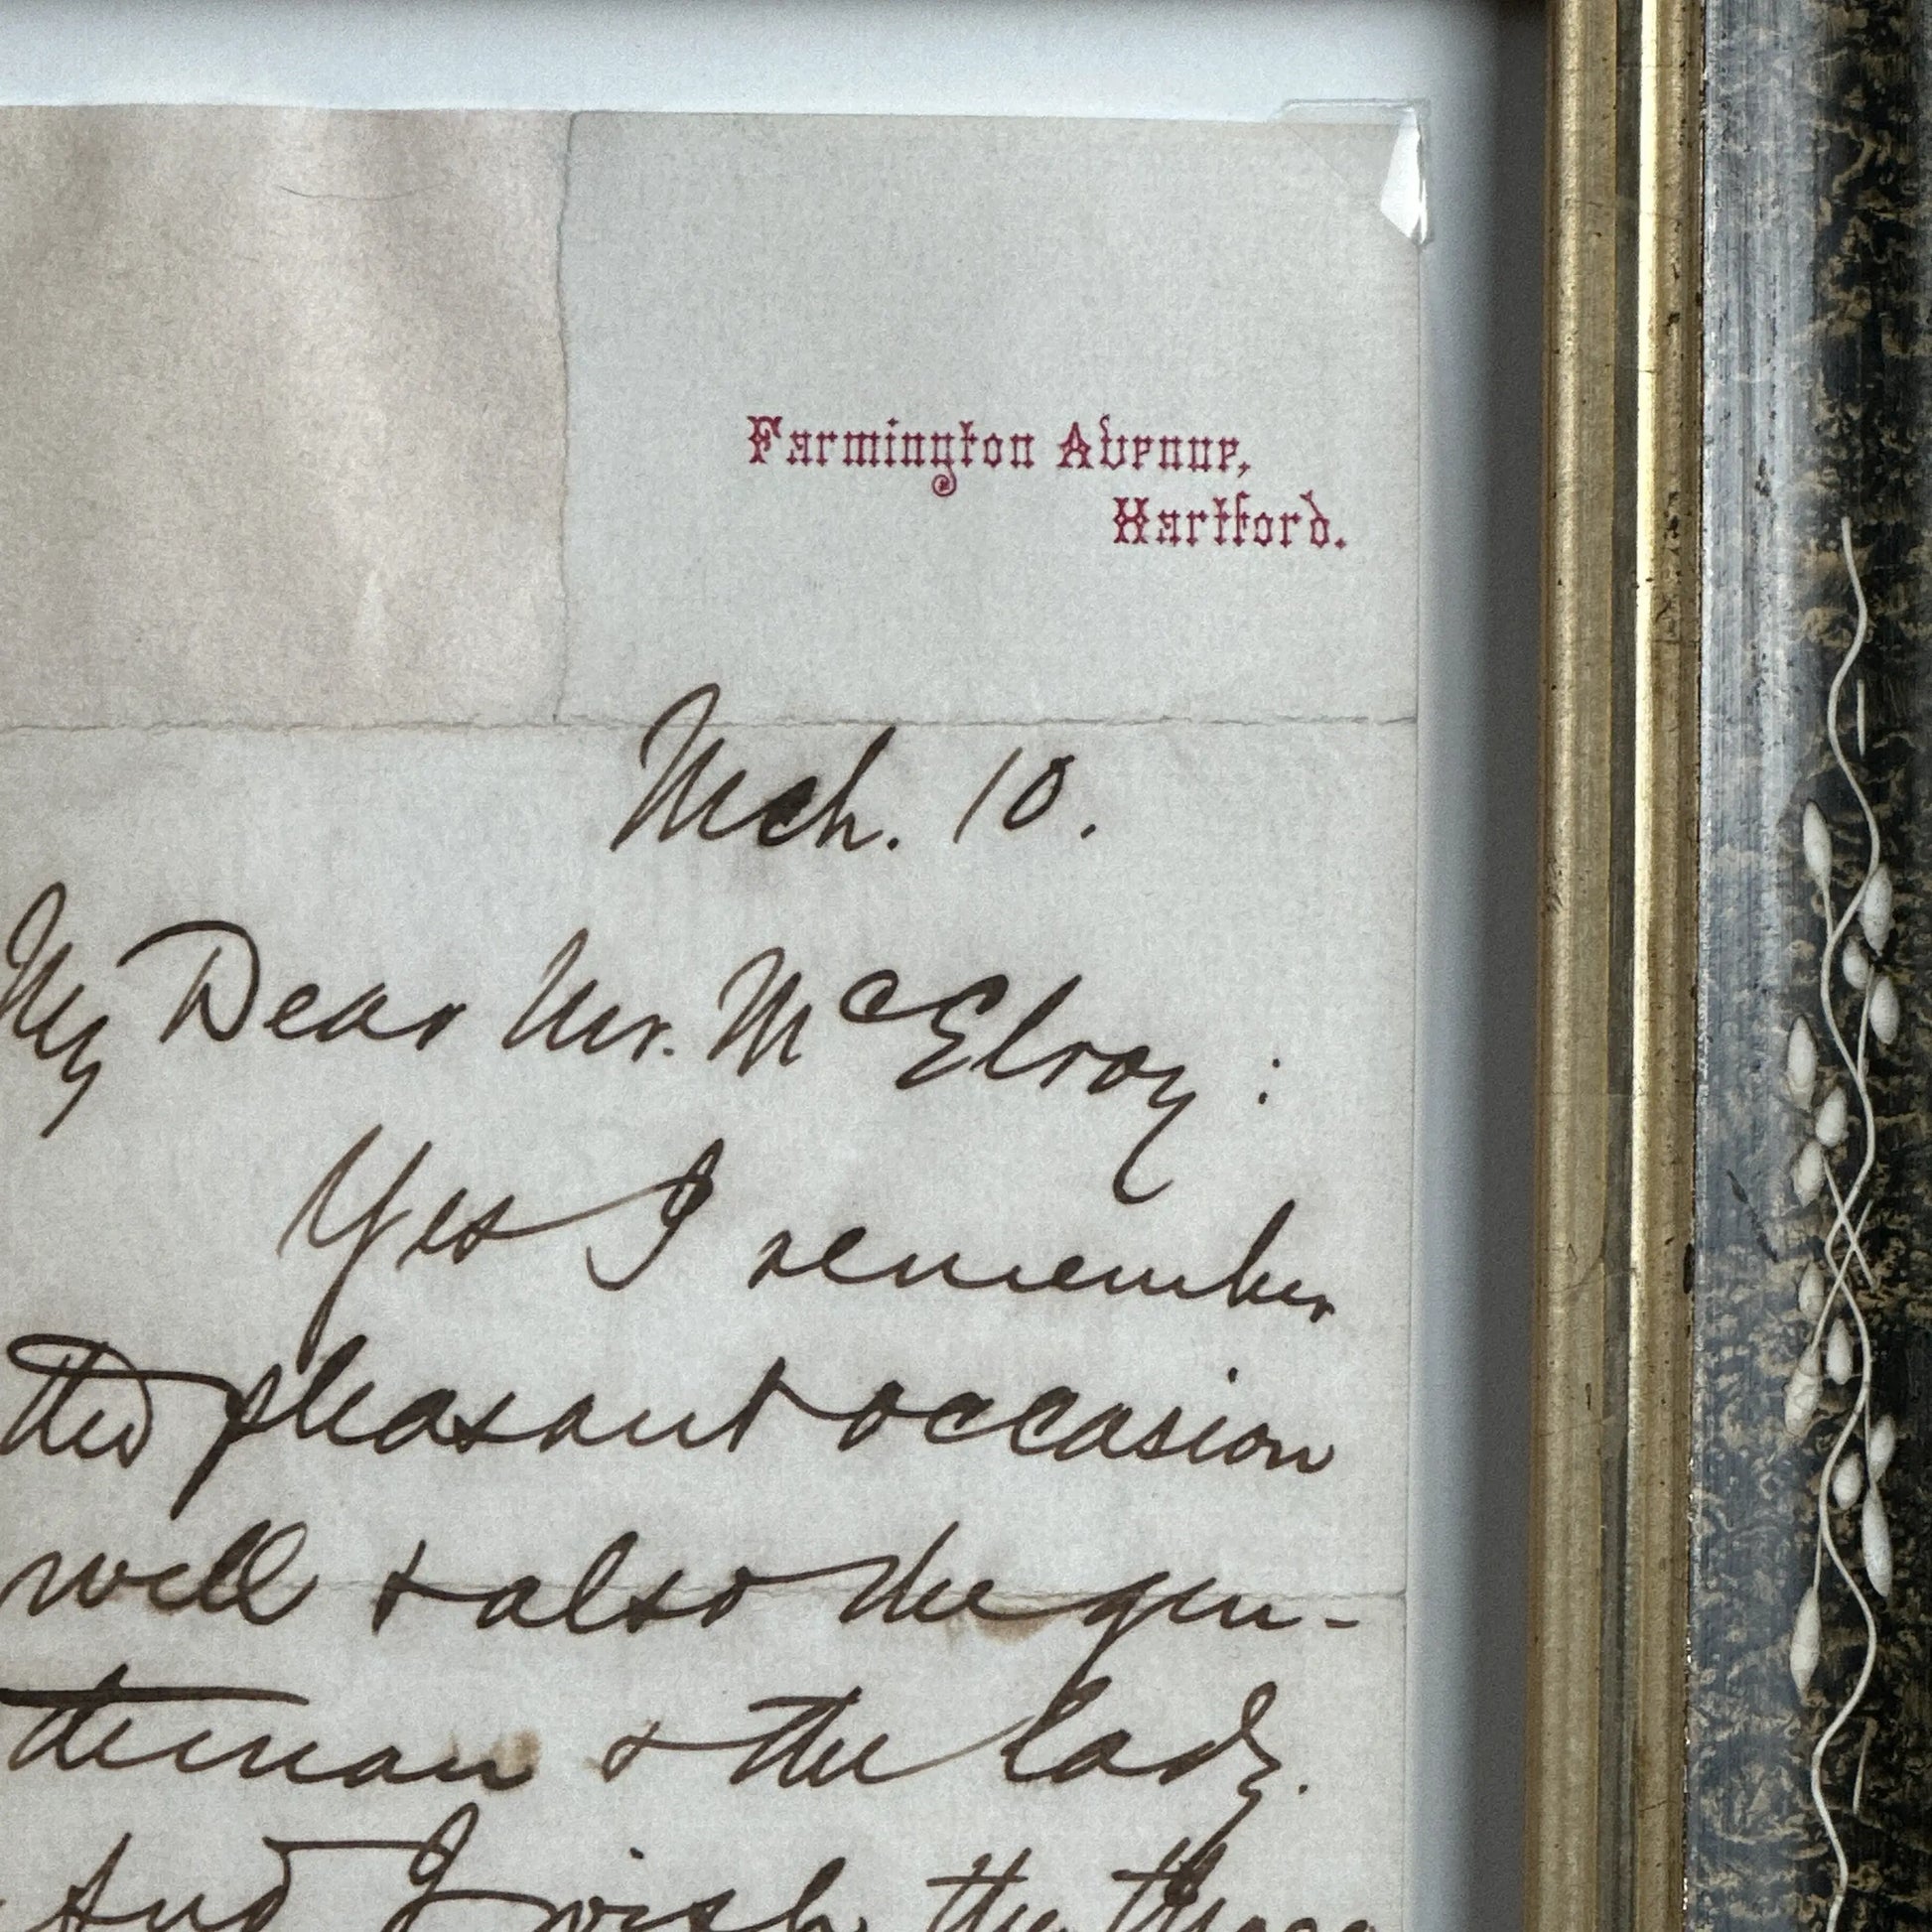 Farmington Avenue,
Hartford.
Mch. 10.
My Dear Mr. McElroy:
Yes I remember
the pleasant occasion
well & also the gen-
tleman & the lady.
And I wish the three